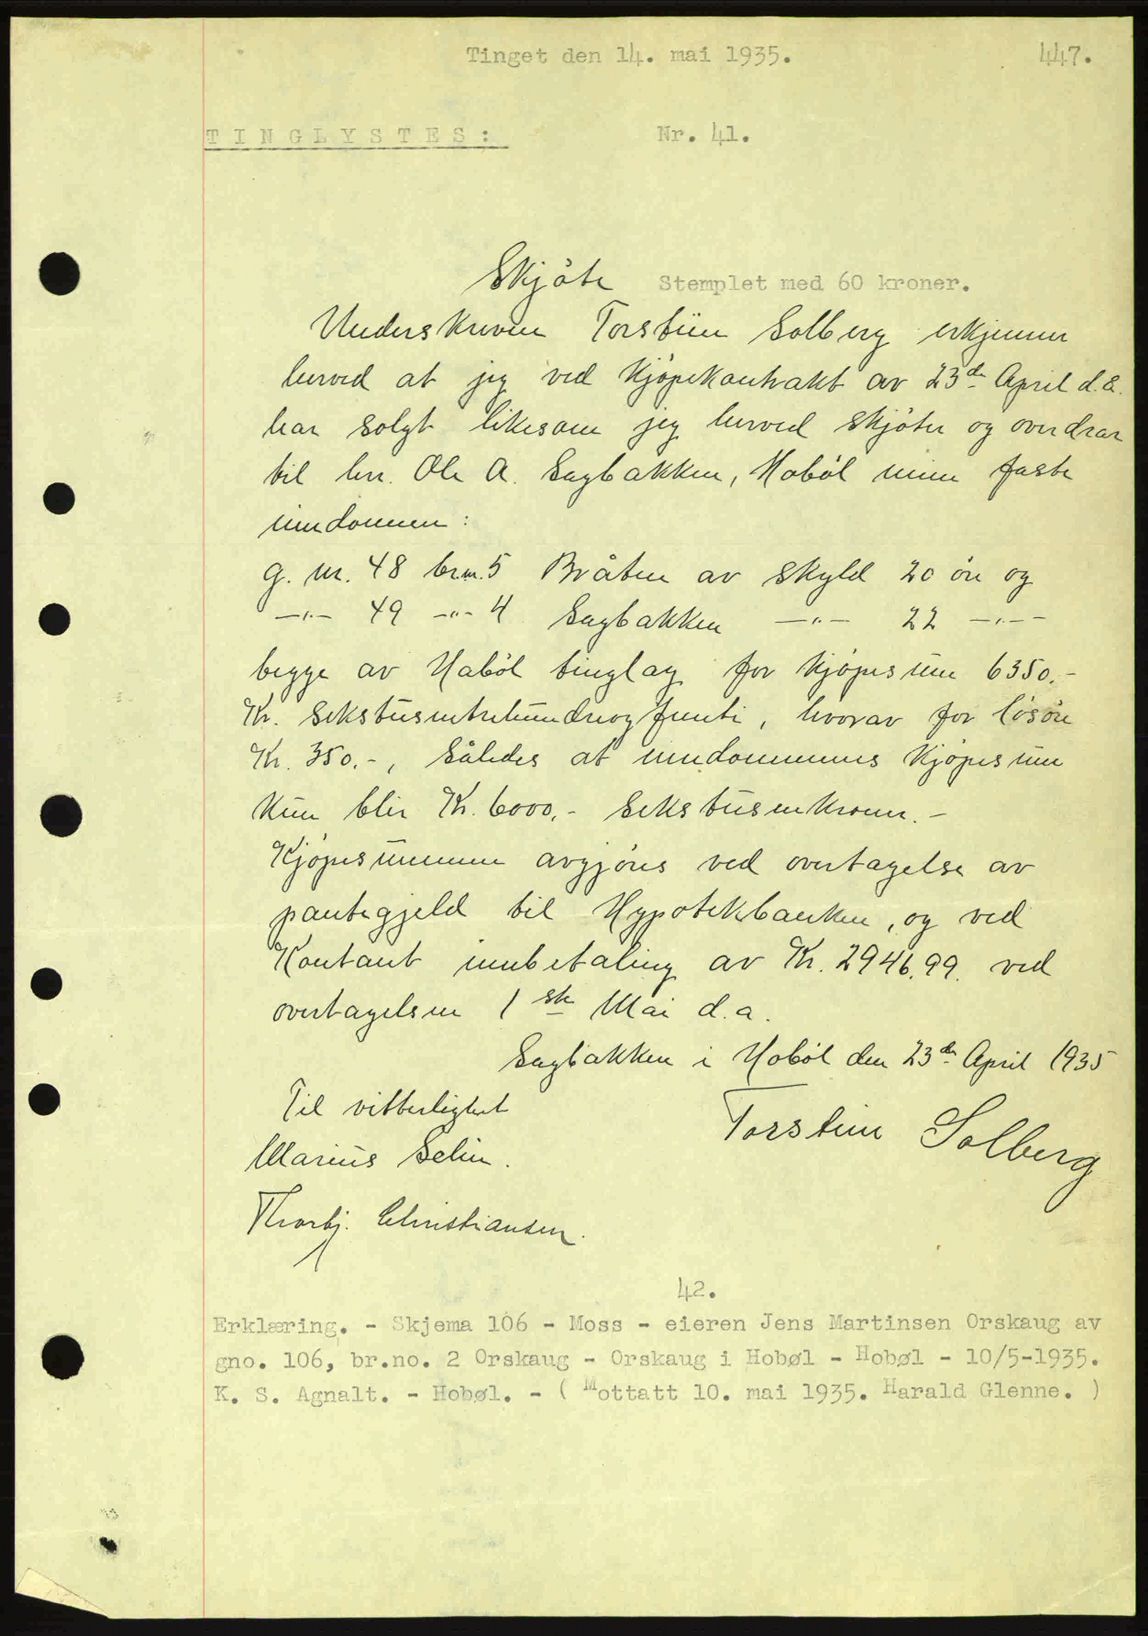 Tinget den 14. mai 1935. 447.
TINGLYSTES: Nr. 41.
Skjöte Stemplet med 60 kroner.
Underskreven Torstein Solberg erkjenner
herved at jeg ved Kjöpekontrakt av 23de April d.å.
har solgt likesom jeg herved skjöter og overdrar
til hr. Ole A. Sagbakken, Hoböl min faste
eiendommen:
g. nr. 48 br.nr. 5 Bråten av skyld 20 öre og
—"— 49 —"— 4 Sagbakken —"— 22 —"—
begge av Hoböl tinglag for kjöpesum 6350.-
Kr. Sekstusentrehundreogfemti, hvorav for lösöre
Kr. 350.-, således at eiendommens Kjöpesum
kun blir Kr. 6000,- Sekstusenkroner.-
Kjöpesummen avgjöres ved overtagelse av
pantegjeld til Hypotekbanken, og ved
Kontant innbetaling av Kr. 2946.99. ved
overtagelsen 1ste Mai d.a.
Sagbakken i Hoböl den 23de April 1935
Til vitterlighet
Torstein Solberg
Marius Selin.
Thorbj. Christiansen.
42.
Erklæring. - Skjema 106 - Moss - eieren Jens Martinsen Orskaug av
gno. 106, br.no. 2 Orskaug - Orskaug i Hobøl - Hobøl - 10/5-1935.
K. S. Agnalt. - Hobøl. - ( Mottatt 10. mai 1935. Harald Glenne. )